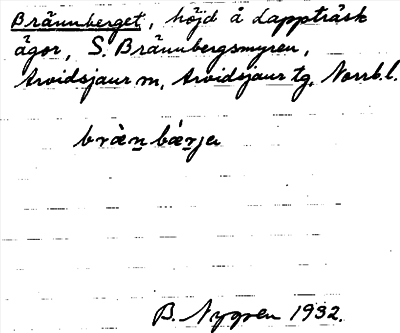 Brännberget, höjd å Lappträsk
ägor, S. Brännbergsmyren,
Arvidsjaur sn, Arvidsjaur tg, Norrb.l.
bràn̲bárja
B. Nygren 1932.